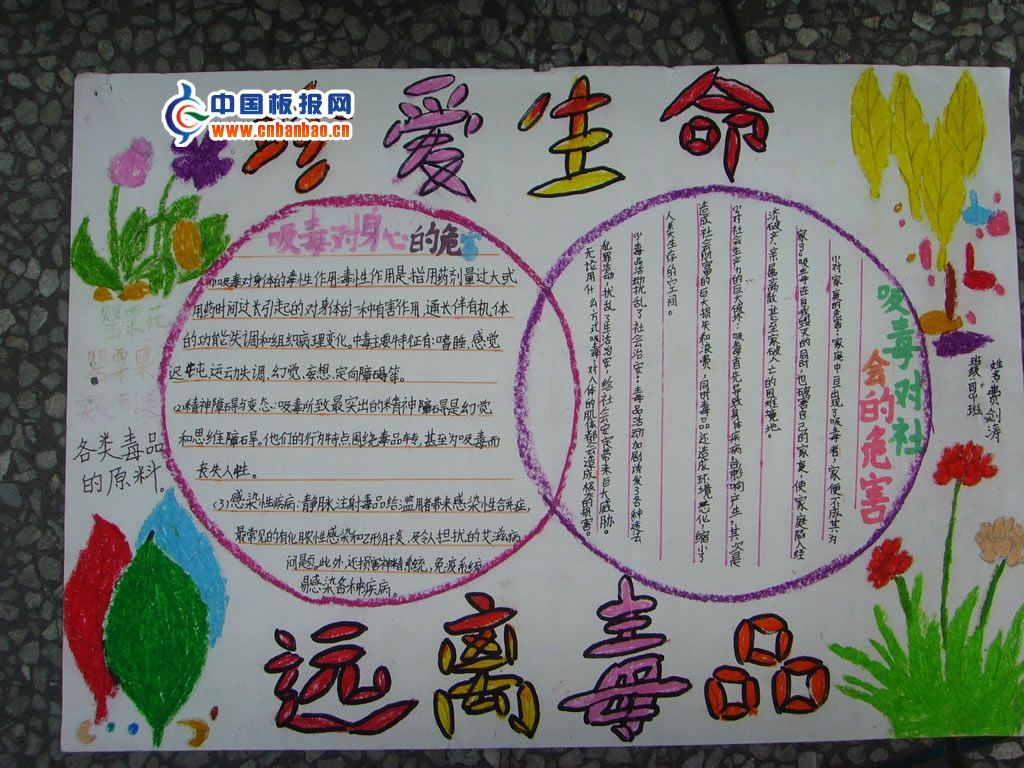 中国板报网
www.cnbanbao.cn
珍爱生命
吸毒对身心的危害
(1)吸毒对身体的毒性作用:毒性作用是指用药剂量过大或
用药时间过长引起的对身体的一种有害作用,通长伴有机体
的功能失调和组织病理变化。中毒主要特征有:嗜睡、感觉
迟钝、运动失调、幻觉、妄想、定向障碍等。
(2)精神障碍与变态:吸毒所致最突出的精神障碍是幻觉
和思维障碍。他们的行为特点围绕毒品转,甚至为吸毒而
丧失人性。
(3)感染性疾病:静脉注射毒品给滥用者带来感染性合并症,
最常见的有化脓性感染和乙形肝炎,及令人担扰的艾滋病
问题。此外,还损害神精系统,免疫系统,
易感染各种疾病。
吸毒对社
会的危害
(1)对家庭的危害:家庭中一旦出现了吸毒者,家便不成其为
家了。吸毒者在自我毁灭的同时,也破害自己的家庭,使家庭陷入经
济破产、亲属离散、甚至家破人亡的困难境地。
(2)对社会生产力的巨大破坏:吸毒首先导致身体疾病,影响产生,其次是
造成社会财富的巨大损失和浪费,同时毒品还造成环境恶化,缩小了
人类生存的空间。
(3)毒品活动扰乱了社会治安:毒品活动加剧诱发了各种违法
犯罪活动,扰乱了生活治安,给社会安定带来巨大威胁。
无论用什么方式吸毒,对人体的肌体都会造成极大的损害。
姓名:费剑涛
班级:四(1)班
罂粟花
罂粟果
各类毒品
的原料。
远离毒品